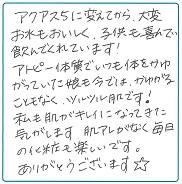 アクアス5に変えてから、大変
お水もおいしく、子供も喜んで
飲んでくれています!
アトピー体質でいつも体をかゆ
がっていた娘も今では、かゆがる
こともなく、ツルツル肌です!
私も肌がキレイになってきた
気がします 肌アレがなく毎日
の化粧も楽しいです。
ありがとうございます☆